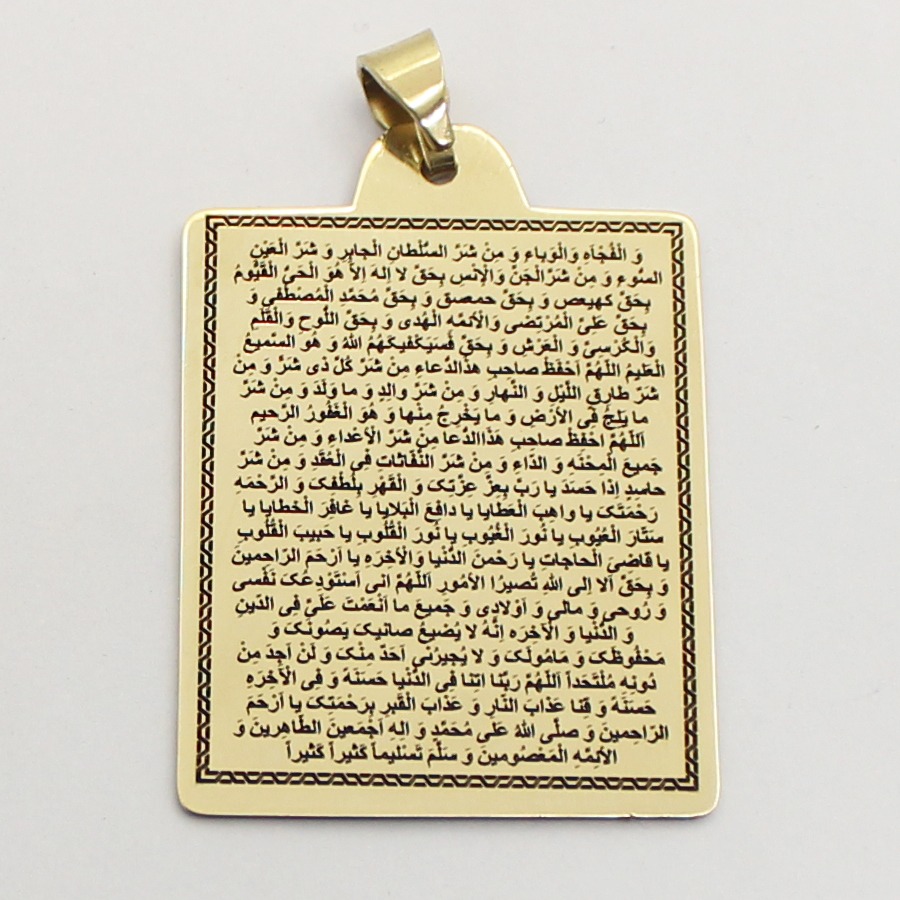 وَ الْفُجْآهِ وَالْوَباءِ وَ مِنْ شَرِّ السُّلْطانِ الْجابِرِ وَ شَرِّ الْعَيْنِ
السُّوءِ وَ مِنْ شَرِّالْجِنِّ وَالْإِنْسِ بِحَقِّ لا اِلهَ اِلاّ هُوَ الْحَيُّ الْقَيُّومُ
بِحَقِّ كهيعص وَ بِحَقِّ حمعسق وَ بِحَقِّ مُحَمَّدِ الْمُصْطَفى وَ
بِحَقِّ عَلِىِّ الْمُرْتَضى وَالْاَئمَّهِ الْهُدى وَ بِحَقِّ اللَّوحِ وَالْقَلَمِ
وَالْكُرْسِىِّ وَ الْعَرْشِ وَ بِحَقِّ فَسَيَكْفيكَهُمُ اللهُ وَ هُوَ السَّميعُ
الْعَليمُ اللّهُمَّ اَحْفَظْ صاحِبِ هذَالدُّعاءِ مِنْ شَرِّ كُلِّ ذى شَرٍّ وَ مِنْ
شَرِّ طارِقِ اللَّيْلِ وَ النَّهارِ وَ مِنْ شَرِّ والِدٍ وَ ما وَلَدَ وَ مِنْ شَرِّ
ما يَلِجُ فِى الْاَرْضِ وَ ما يَخْرِجُ مِنْها وَ هُوَ الْغَفُورُ الرَّحيم
اَللّهُمَّ احْفَظْ صاحِبِ هَذَاالدُّعا مِنْ شَرِّ الْاَعْداءِ وَ مِنْ شَرِّ
جَميعِ الْمِحْنَهِ وَ الدّاءِ وَ مِنْ شَرِّ النَّفّاثاتِ فِى الْعُقَدِ وَ مِنْ شَرِّ
حاسِدٍ اِذا حَسَدَ يا رَبِّ بِعِزِّ عِزَّتِکَ وَ الْقَهْرِ بِلُطْفِکَ وَ الرَّحْمَهِ
رَحْمَتَکَ يا واهِبَ الْعَطايا يا دافِعَ الْبَلايا يا غافِرَ الْخَطايا يا
سَتّارَ الْعُيُوبِ يا نُورَ الْغُيُوبِ يا نُورَ الْقُلُوبِ يا حَبيبَ الْقُلُوبِ
يا قاضِىَ الْحاجاتِ يا رَحْمنَ الدُّنْيا وَالْآخِرَهِ يا اَرْحَمَ الرّاحِمينَ
وَ بِحَقِّ اَلا اِلى اللهِ تُصيرُا الاُمُورِ اَللّهُمَّ انى اَسْتَوْدِعُکَ نَفْسى
وَ رُوحى وَ مالى وَ اَوْلادى وَ جَميعِ ما اَنْعَمْتَ عَلَىَّ فِى الدّينِ
وَ الدُّنْيا وَ الْآخِرَهِ اِنَّهُ لا يُضيعُ صانيکَ يَصُونُکَ وَ
مَحْفُوظُکَ وَ مَامُولُکَ وَ لا يُجيرُنى اَحَدٌ مِنْکَ وَ لَنْ اَجِدَ مِنْ
دُونِهِ مُلْتَحَداً اَللّهُمَّ رَبَّنا اتِنا فِى الدُّنْيا حَسَنَهً وَ فِى الْآخِرَهِ
حَسَنَهً وَ قِنا عَذابَ النّارِ وَ عَذابَ الْقَبرِ بِرَحْمَتِکَ يا اَرْحَمَ
الرّاحِمينَ وَ صَلَّى اللهُ عَلى مُحَمَّدٍ وَ الِهِ اَجْمَعينَ الطّاهِرينَ وَ
الْاَئِمَّهِ الْمَعْصُومينَ وَ سَلَّمَ تَسْليماً كَثيراً كَثيراً